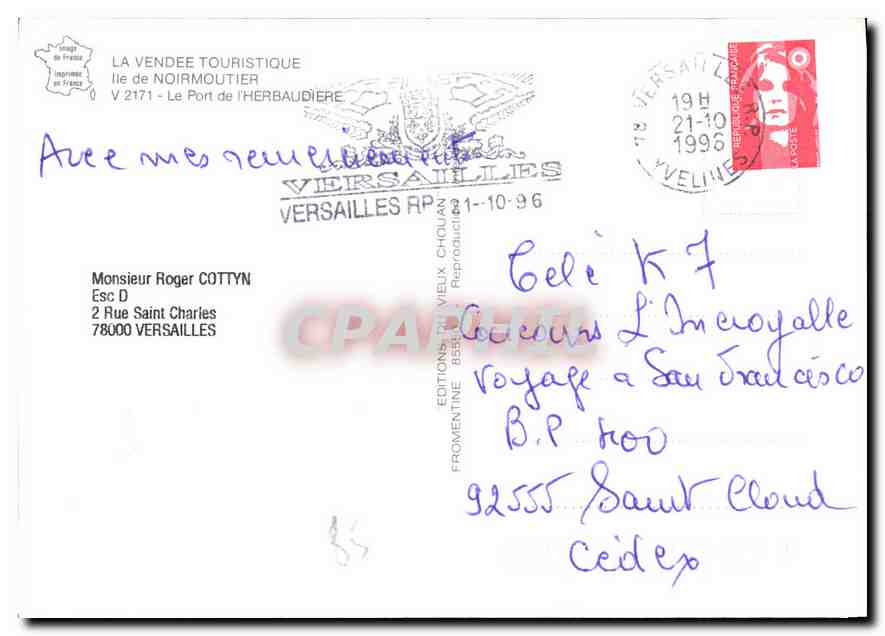 Image
de France
Imprimée
en France
LA VENDEE TOURISTIQUE
Ile de NOIRMOUTIER
V 2171 - Le Port de l'HERBAUDIERE
Avec mes remerciements
VERSAILLES
VERSAILLES RP 21-10-96
78 VERSAILLES R.P.
19 H
21-10
1996
YVELINES
REPUBLIQUE FRANÇAISE
LA POSTE
Monsieur Roger COTTYN
Esc D
2 Rue Saint Charles
78000 VERSAILLES
EDITIONS DU VIEUX CHOUAN
FROMENTINE 8555 Reproduction
CPAPHIL
Télé K7
Concours L'Incroyalle
Voyage a San Francisco
B.P 400
92555 Saint Cloud
Cédex
85